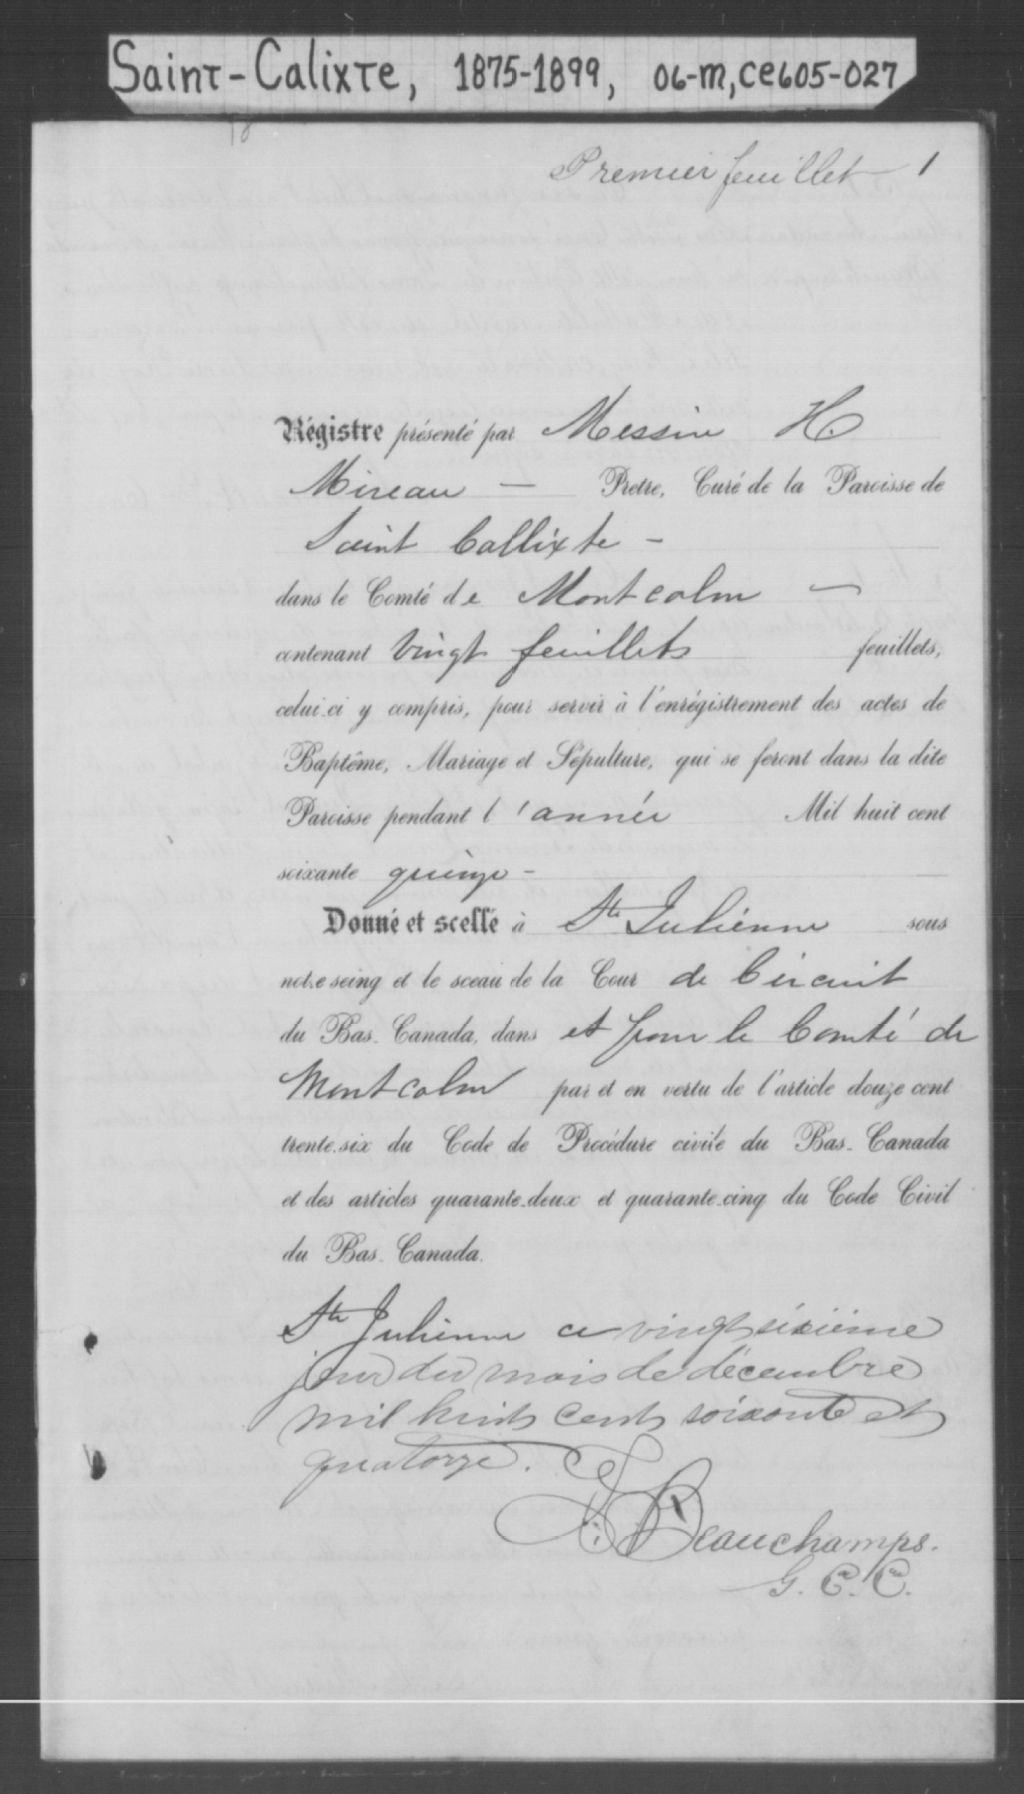 Saint-Calixte, 1875-1899, 06-M, CE605-027
Premier feuillet 1
Régistre présenté par Messire H.
Mireau — Pretre, Curé de la Paroisse de
Saint Callixte -
dans le Comté de Montcalm —
contenant Vingt feuillets feuillets,
celui-ci y compris, pour servir à l'enrégistrement des actes de
Baptême, Mariage et Sépulture, qui se feront dans la dite
Paroisse pendant l'année Mil huit cent
soixante quinze -
Donné et scellé à Ste Julienne sous
notre seing et le sceau de la Cour de Circuit
du Bas-Canada, dans et pour le Comté de
Montcalm par et en vertu de l'article douze cent
trente-six du Code de Procédure civile du Bas-Canada
et des articles quarante-deux et quarante-cinq du Code Civil
du Bas-Canada.
Ste Julienne ce vingt sixième
jour du mois de décembre
mil huit cent soixante et
quatorze.
Beauchamps.
G. C. C.